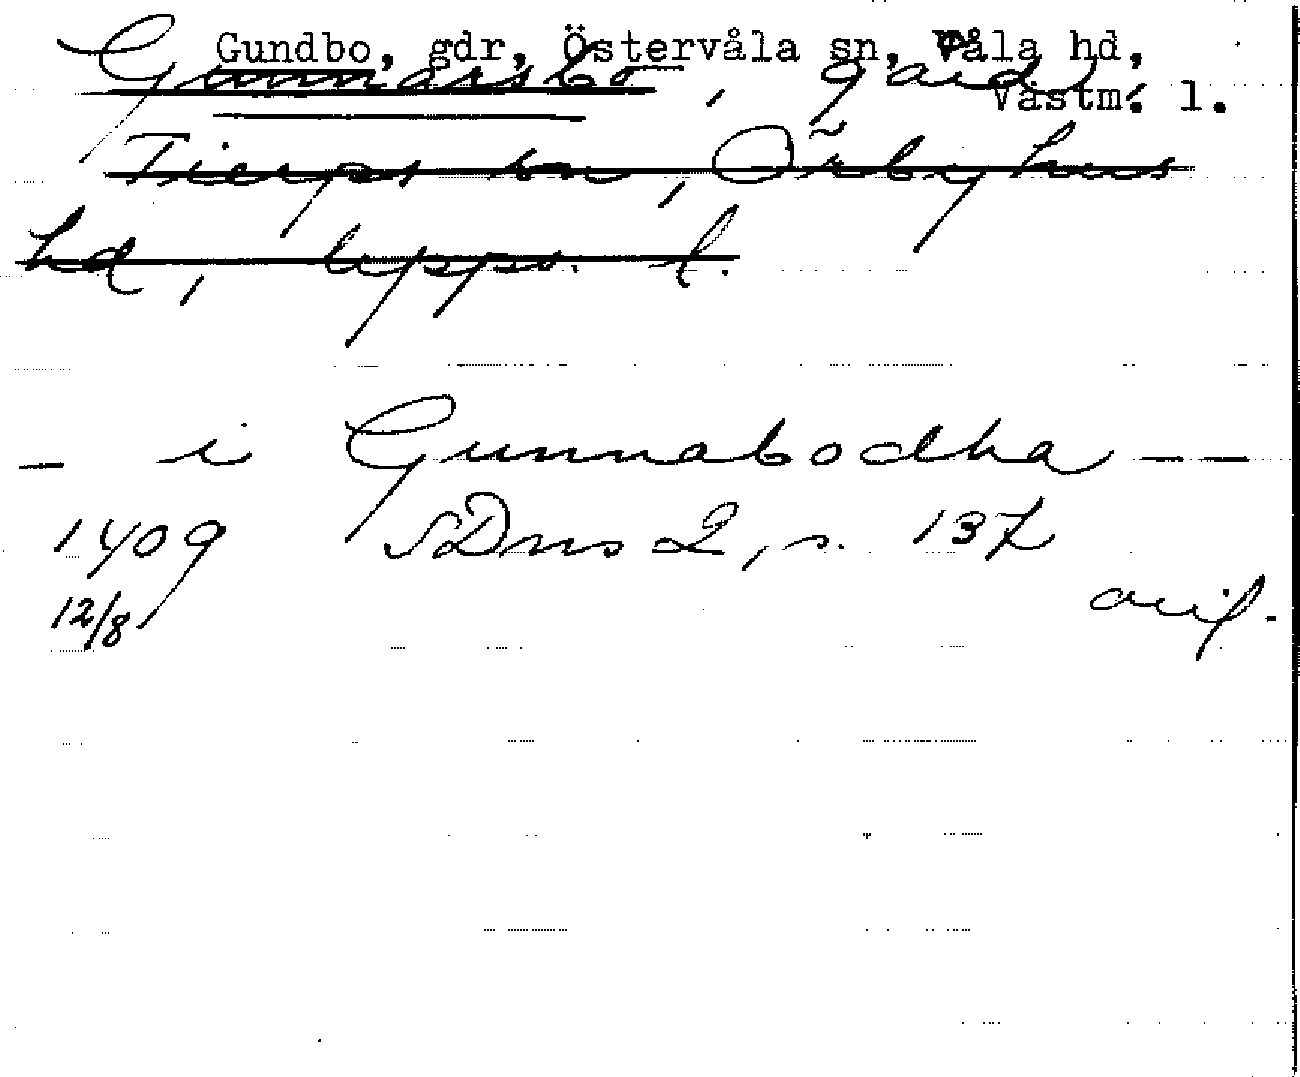 Gundbo, gdr, Östervåla sn, Våla hd,
Västm. l.
Gunnarsbo, gård
Tierps sn, Örbyhus
hd, Upps. l.
— i Gunnabodha — —
1409 SDns 2, s. 137
12/8 avif.